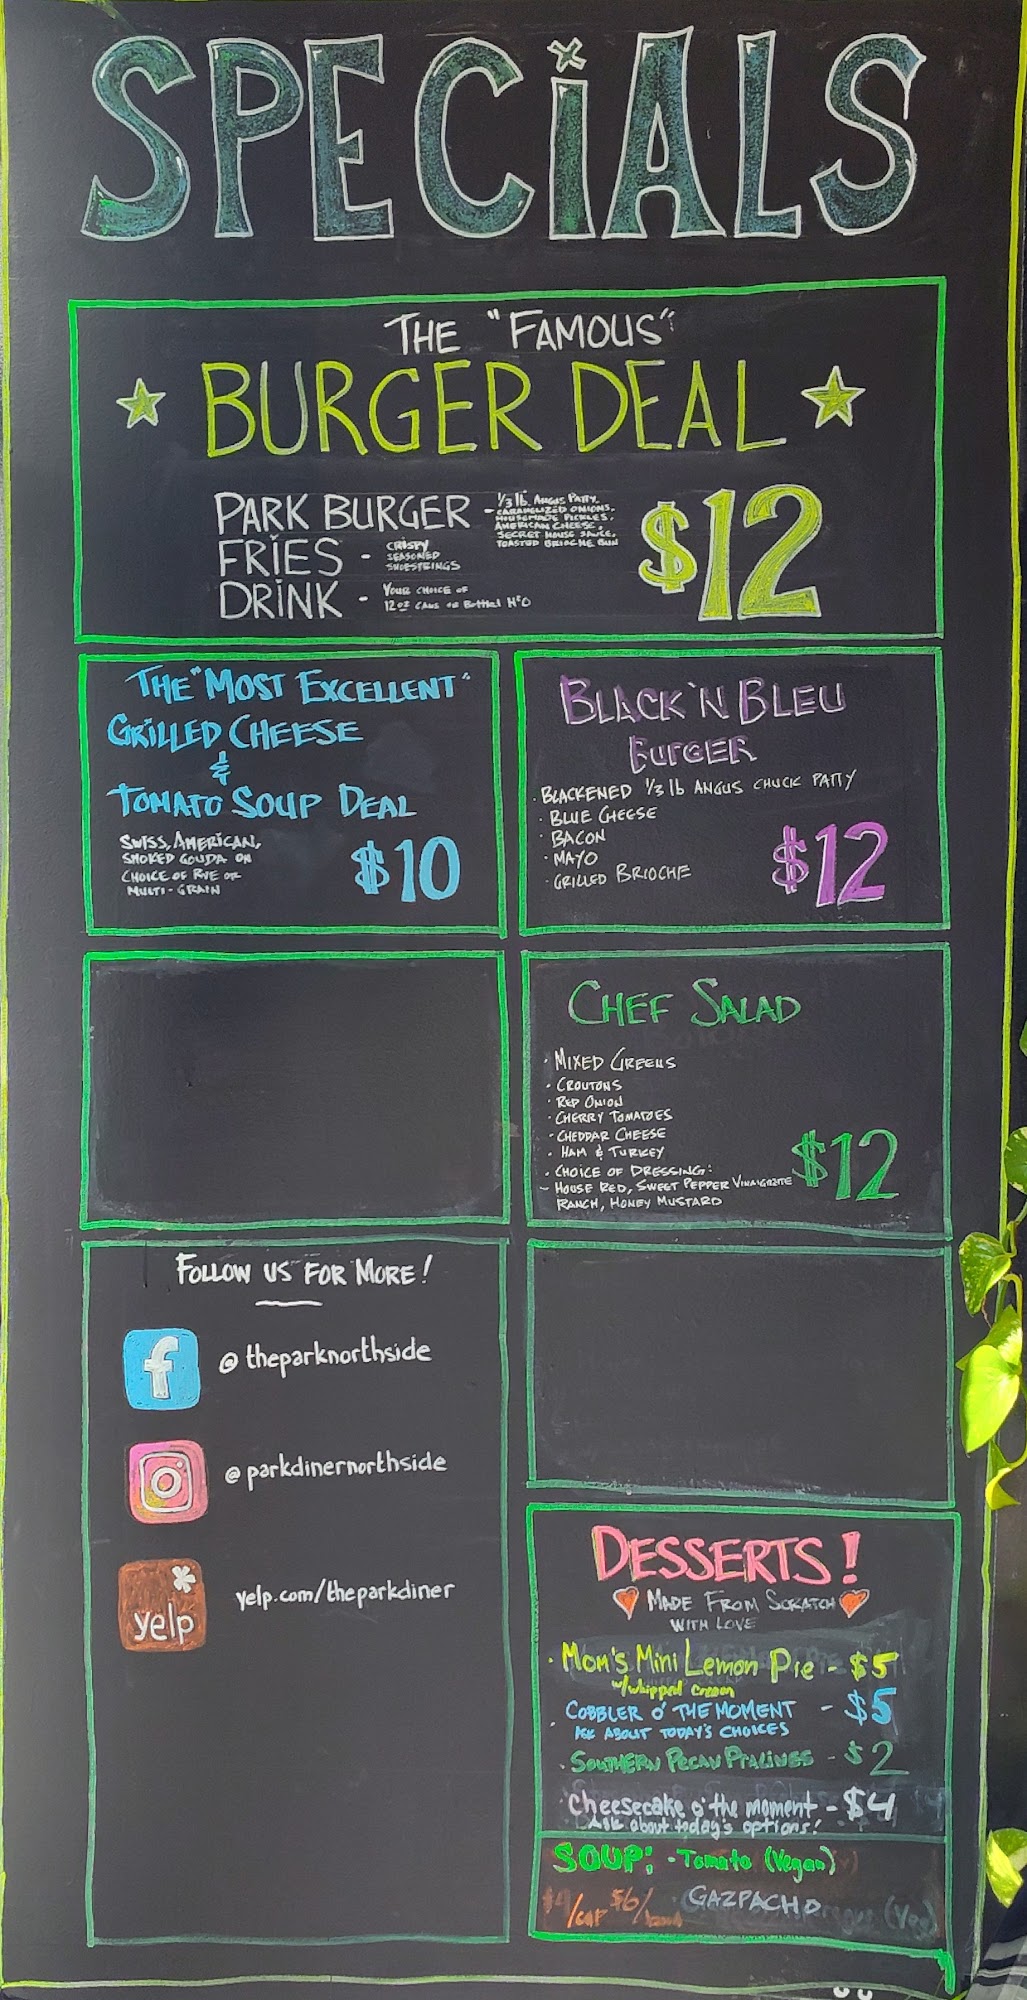 SPECiALS
THE "FAMOUS"
BURGER DEAL
PARK BURGER - 1/3 lb. ANGUS PATTY,
CARAMELIZED ONIONS,
HOUSEMADE PICKLES,
AMERICAN CHEESE,
SECRET HOUSE SAUCE,
TOASTED BRIOCHE BUN
FRiES - CRISPY
SEASONED
SHOESTRINGS
DRiNK - YOUR CHOICE OF
12oz CANS or Bottled H2O
$12
THE "MOST EXCELLENT"
GRiLLED CHEESE
&
TOMATO SOUP DEAL
SWISS, AMERICAN,
SMOKED GOUDA ON
CHOICE OF RYE OR
MULTI-GRAIN
$10
BLACK 'N BLEU
BURGER
· BLACKENED 1/3 lb ANGUS CHUCK PATTY
· BLUE CHEESE
· BACON
· MAYO
· GRILLED BRIOCHE
$12
CHEF SALAD
· MIXED GREENS
· CROUTONS
· RED ONION
· CHERRY TOMATOES
· CHEDDAR CHEESE
· HAM & TURKEY
· CHOICE OF DRESSING:
- HOUSE RED, SWEET PEPPER VINAIGRETTE
RANCH, HONEY MUSTARD
$12
FOLLOW US FOR MORE!
f @theparknorthside
@parkdinernorthside
yelp yelp.com/theparkdiner
DESSERTS!
MADE FROM SCRATCH
WITH LOVE
· Mom's Mini Lemon Pie - $5
w/whipped cream
· COBBLER O' THE MOMENT - $5
ASK ABOUT TODAY'S CHOICES
· SOUTHERN PECAN PRALINES - $2
· Cheesecake o' the moment - $4
Ask about today's options!
SOUP: - Tomato (Vegan)
$4/cup $6/ GAZPACHO